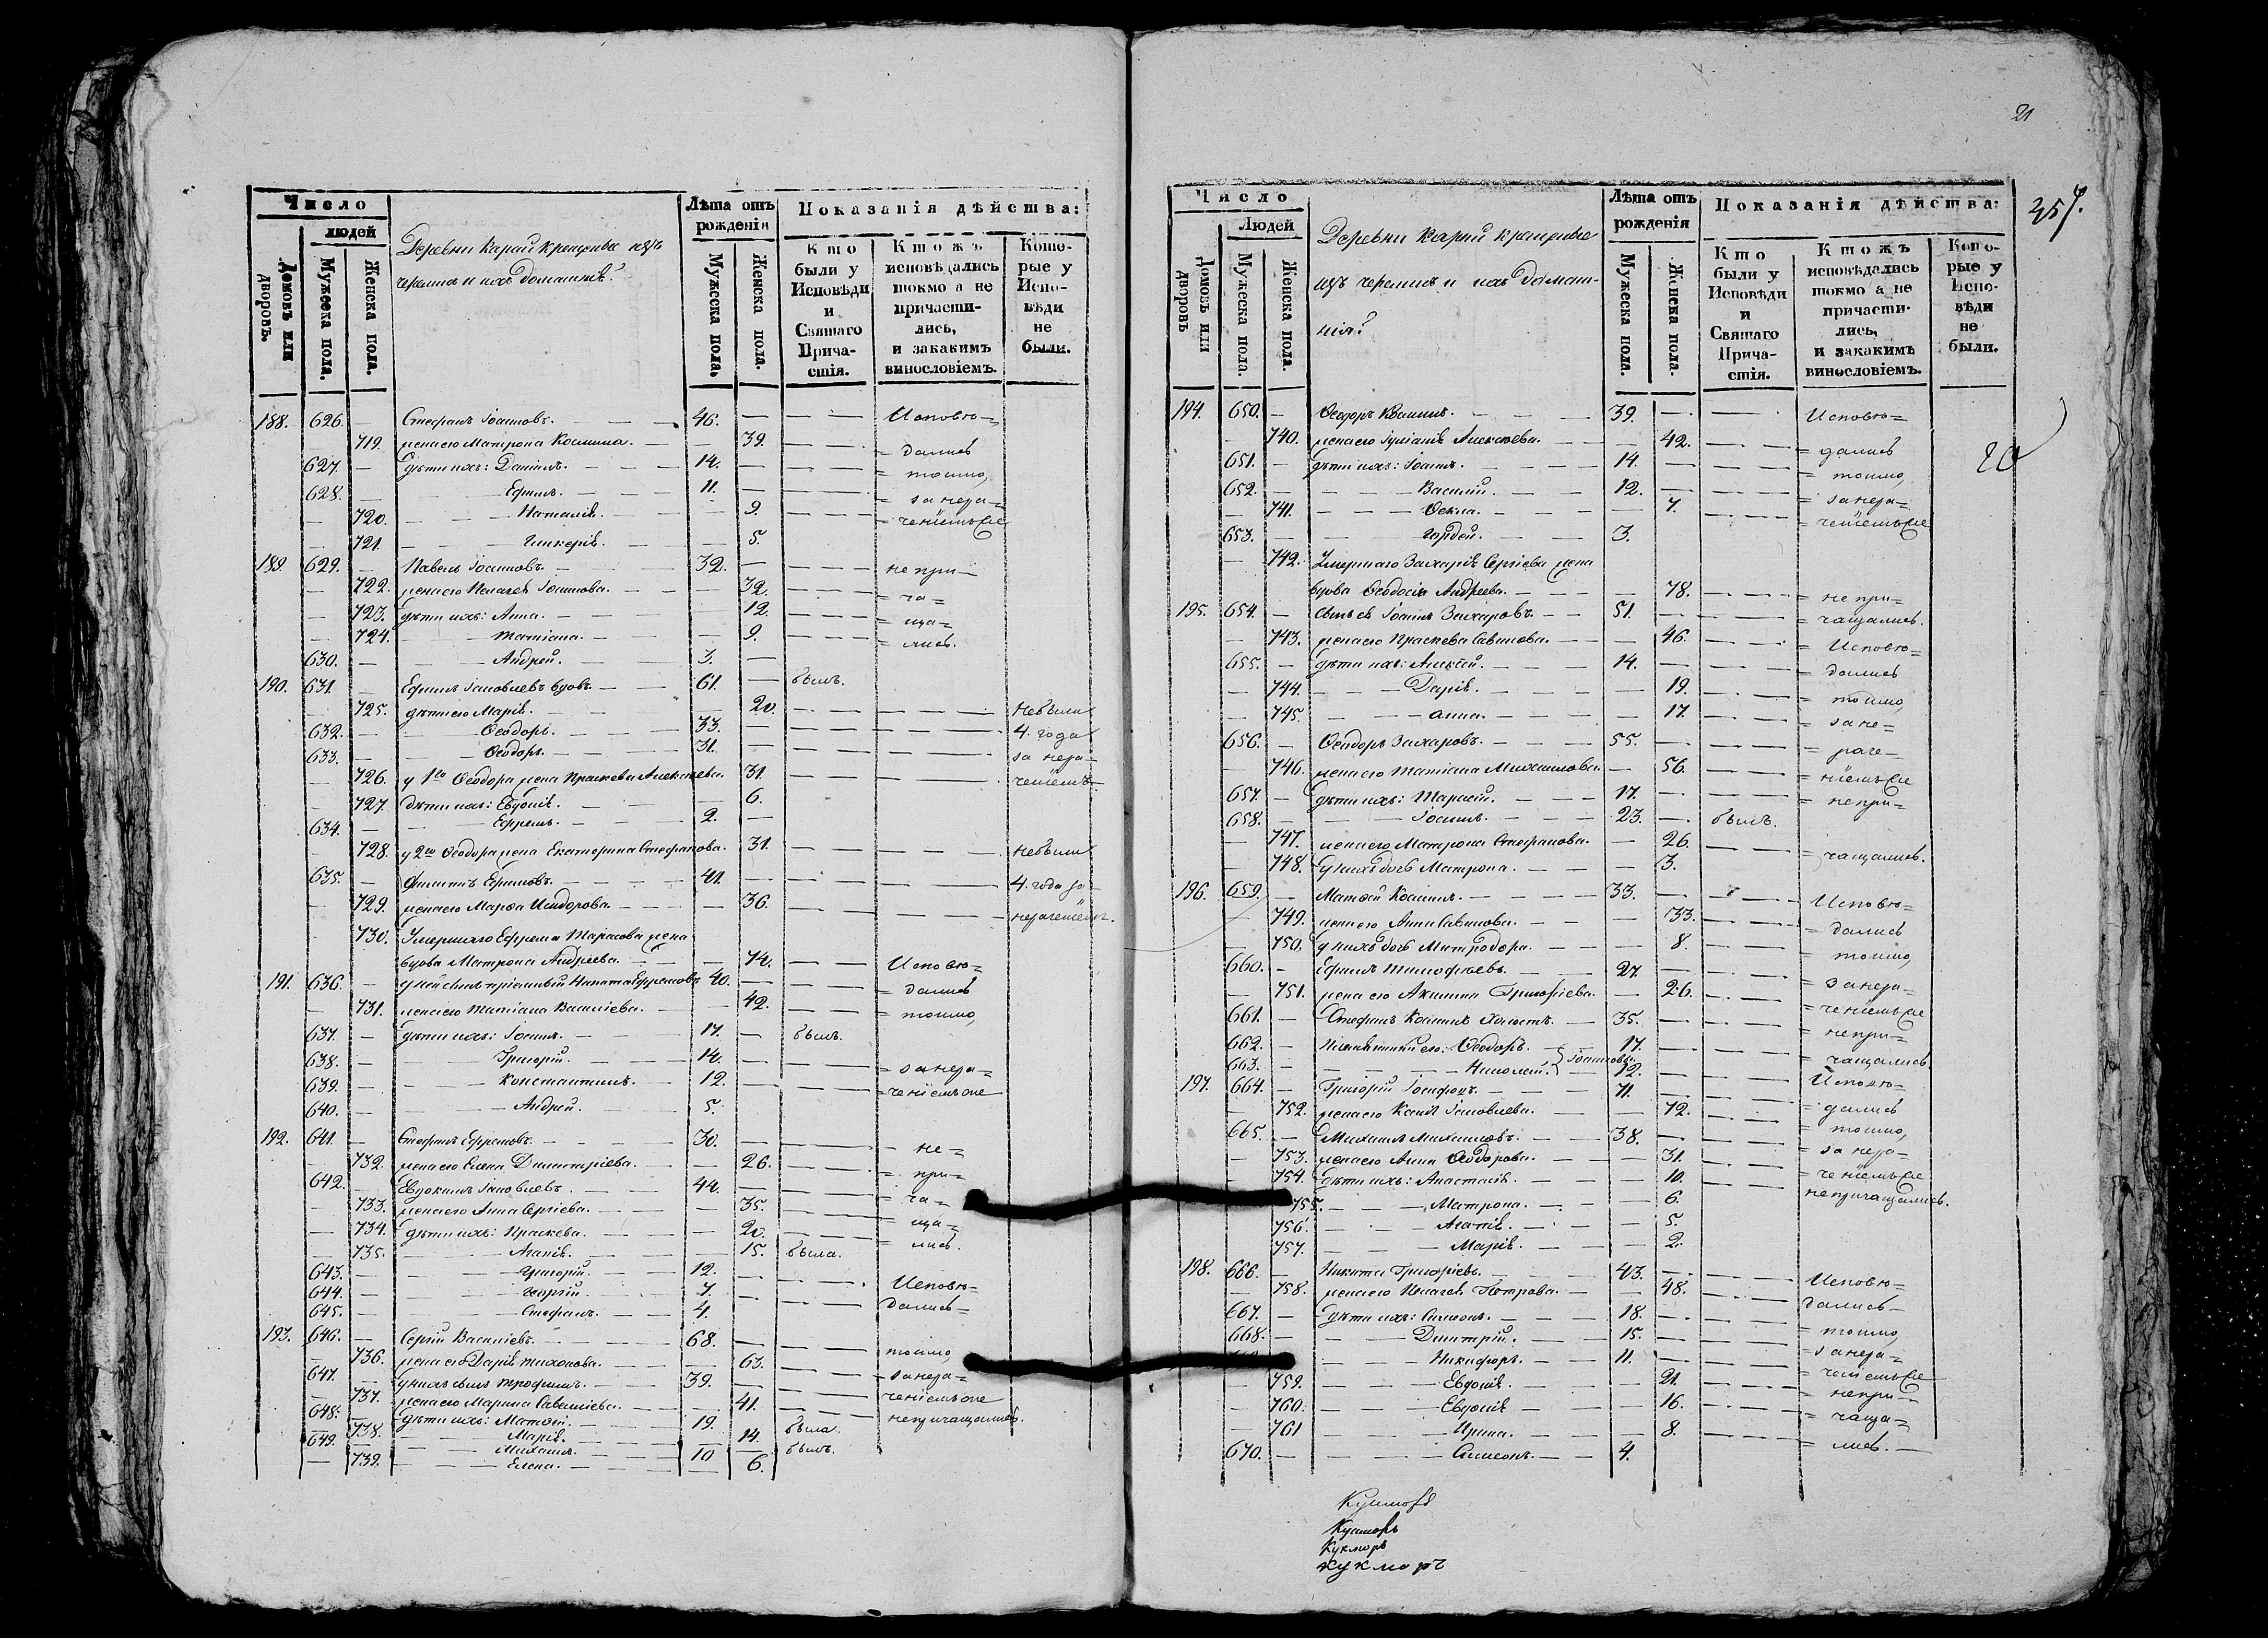 Число
людей
Домовъ или дворовъ.
Мужеска пола.
Женска пола.
Деревни Карай крещеные изъ
черемисъ и ихъ домашнія?
Лѣта отъ рожденія
Мужеска пола.
Женска пола.
Показанія дѣйства:
Кто были у Исповѣди и Святаго Причастія.
Ктожъ исповѣдались токмо а не причастились, и закакимъ винословіемъ.
Которые у Исповѣди не были.
188. 626. — Стефанъ Іоанновъ. 46. — Исповѣ=
719. жена его Матрона Космина. 39. = дались
627. — дѣти ихъ: Даніилъ. 14. = токмо,
628. — Ефимъ. 11. = занера=
720. Наталія. 9. = ченіемъ не
721. Гликерія. 5.
189. 629. — Павелъ Іоанновъ. 32. — непри=
722. жена его Пелагея Іоаннова. 32. = ча=
723. дѣти ихъ: Анна. 12. = ща=
724. Татіана. 9. = лись.
630. — Андрей. 3.
190. 631. Ефимъ Іаковлевъ вдовъ. 61. — былъ.
725. дѣти его Марія. 20. небыли
632. — Ѳеодоръ. 33. 4. года
633. — Ѳеодоръ. 31. за нера=
726. у 1го Ѳеодора жена Праскева Алексѣева. 31. ченіемъ.
727. дѣти ихъ: Евдокія. 6.
634. — Ефремъ. 2.
728. у 2го Ѳеодора жена Екатерина Стефанова. 31. небыли
635. — Филиппъ Ефимовъ. 41. 4. года за=
729. жена его Марѳа Исидорова. 36. нераченіемъ.
730. Умершаго Ефрема Тарасова жена
вдова Матрона Андреева. 74. Исповѣ=
191. 636. — у ней сынъ пріемный Никита Ефремовъ 40. = дались
731. жена его Татіана Василіева. 42. = токмо,
637. — дѣти ихъ: Іоаннъ. 17. — былъ.
638. — Григорій. 14. = занера=
639. — Константинъ. 12. = ченіемъ не
640. — Андрей. 5.
192. 641. — Стефанъ Ефремовъ. 30. — не=
732. жена его Елена Димитріева. 26. = при=
642. Евдокимъ Іаковлевъ. 44. = ча=
733. жена его Анна Сергіева. 35. = ща=
734. дѣти ихъ: Праскева. 20. = лись.
735. Агапія. 15. была.
643. — Григорій. 12.
644. — Георгій. 7. Исповѣ=
645. — Стефанъ. 4. дались=
193. 646. — Сергій Василіевъ. 68.
736. жена его Дарія Тихонова. 63. токмо,
647. у нихъ сынъ Трофимъ. 39. = занера=
737. жена его Марина Савеліева. 41. ченіемъ не
648. дѣти ихъ: Матѳей. 19. непричащались.
738. Марія. 14. была.
649. Михаилъ. 10 былъ.
739. Елена. 6.
21
357.
20
Число
Людей
Домовъ или дворовъ
Мужеска пола.
Женска пола.
Деревни Карай крещеные
изъ черемисъ и ихъ домаш-
нія?
Лѣта отъ рожденія
Мужеска пола.
Женска пола.
Показанія дѣйства:
Кто были у Исповѣди и Святаго Причастія.
Ктожъ исповѣдались токмо а не причастились, и закакимъ винословіемъ.
Которые у Исповѣди не были.
194. 650. — Ѳеодоръ Косминъ. 39. Исповѣ=
740. жена его Іуліанія Алексѣева. 42. = дались
651. — дѣти ихъ: Іоаннъ. 14. = токмо,
652. — Василій. 12. = занера=
741. Ѳекла. 7. = ченіемъ не
653. — Гордей. 3.
742. Умершаго Захаріи Сергіева жена
вдова Ѳеодосія Андреева. 78. = непри=
195. 654. — сынъ ея Іоаннъ Захаровъ. 51. = чащались.
743. жена его Праскева Савинова. 46. = Исповѣ=
655. — дѣти ихъ: Алексій. 14. = дались
744. Дарія. 19. = токмо,
745. Анна. 17. = зане=
656. — Ѳеодоръ Захаровъ. 55. = раче=
746. жена его Татіана Михаилова. 56. = ніемъ не
657. — дѣти ихъ: Тарасій. 17. = непри=
658. — Іоаннъ. 23. былъ.
747. жена его Матрона Стефанова. 26.
748. у нихъ дочь Матрона. 3. = чащались.
196. 659. — Матѳей Косминъ. 33. Исповѣ=
749. жена его Анна Савинова. 33. = дались
750. у нихъ дочь Митродора. 8. = токмо,
660. — Ефимъ Тимофѣевъ. 27. = занера=
751. жена его Акилина Григоріева. 26. = ченіемъ не
661. — Стефанъ Косминъ холостъ. 35. = непри=
662. — племянники его: Ѳеодоръ. 17. = чащались
663. — Николай. } Іоанновы. 12.
197. 664. — Григорій Іосифовъ. 71. Исповѣ=
752. жена его Ксенія Іаковлева. 72. = дались
665. — Михаилъ Михаиловъ. 38. = токмо,
753. жена его Анна Ѳеодорова. 31. = занера=
754. дѣти ихъ: Анастасія. 10. = ченіемъ не
755. Матрона. 6. непричащались.
756. Агапія. 5.
757. Марія. 2.
198. 666. — Никита Григоріевъ. 43. Исповѣ=
758. жена его Пелагея Петрова. 48. дались=
667. — дѣти ихъ: Симеонъ. 18. = токмо,
668. — Димитрій. 15. = занера=
Никифоръ. 11. = ченіемъ не
759. Евдокія. 21. = непри=
760. Евдокія 16. = чаща=
761 Ирина. 8. = лись.
670. — Симеонъ. 4.
Кукморъ
Кукморъ
Кукморъ
кукморъ